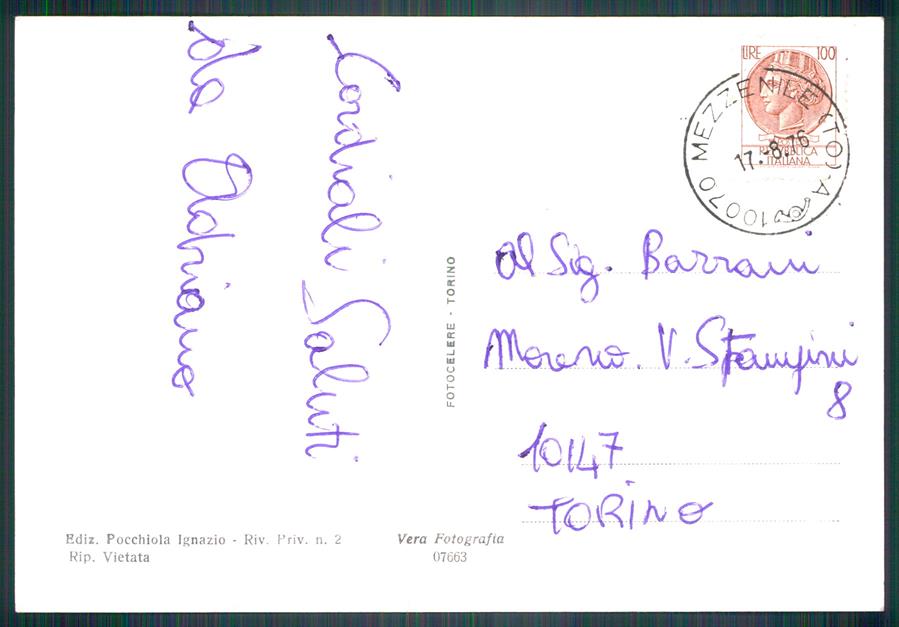 Cordiali Saluti
da Adriano
FOTOCELERE - TORINO
LIRE 100
REPUBBLICA
ITALIANA
10070 MEZZENILE (TO) - A
17.-8.76
Al Sig. Barrani
Moreno. V. Stampini
8
10147
TORINO
Ediz. Pocchiola Ignazio - Riv. Priv. n. 2
Rip. Vietata
Vera Fotografia
07663